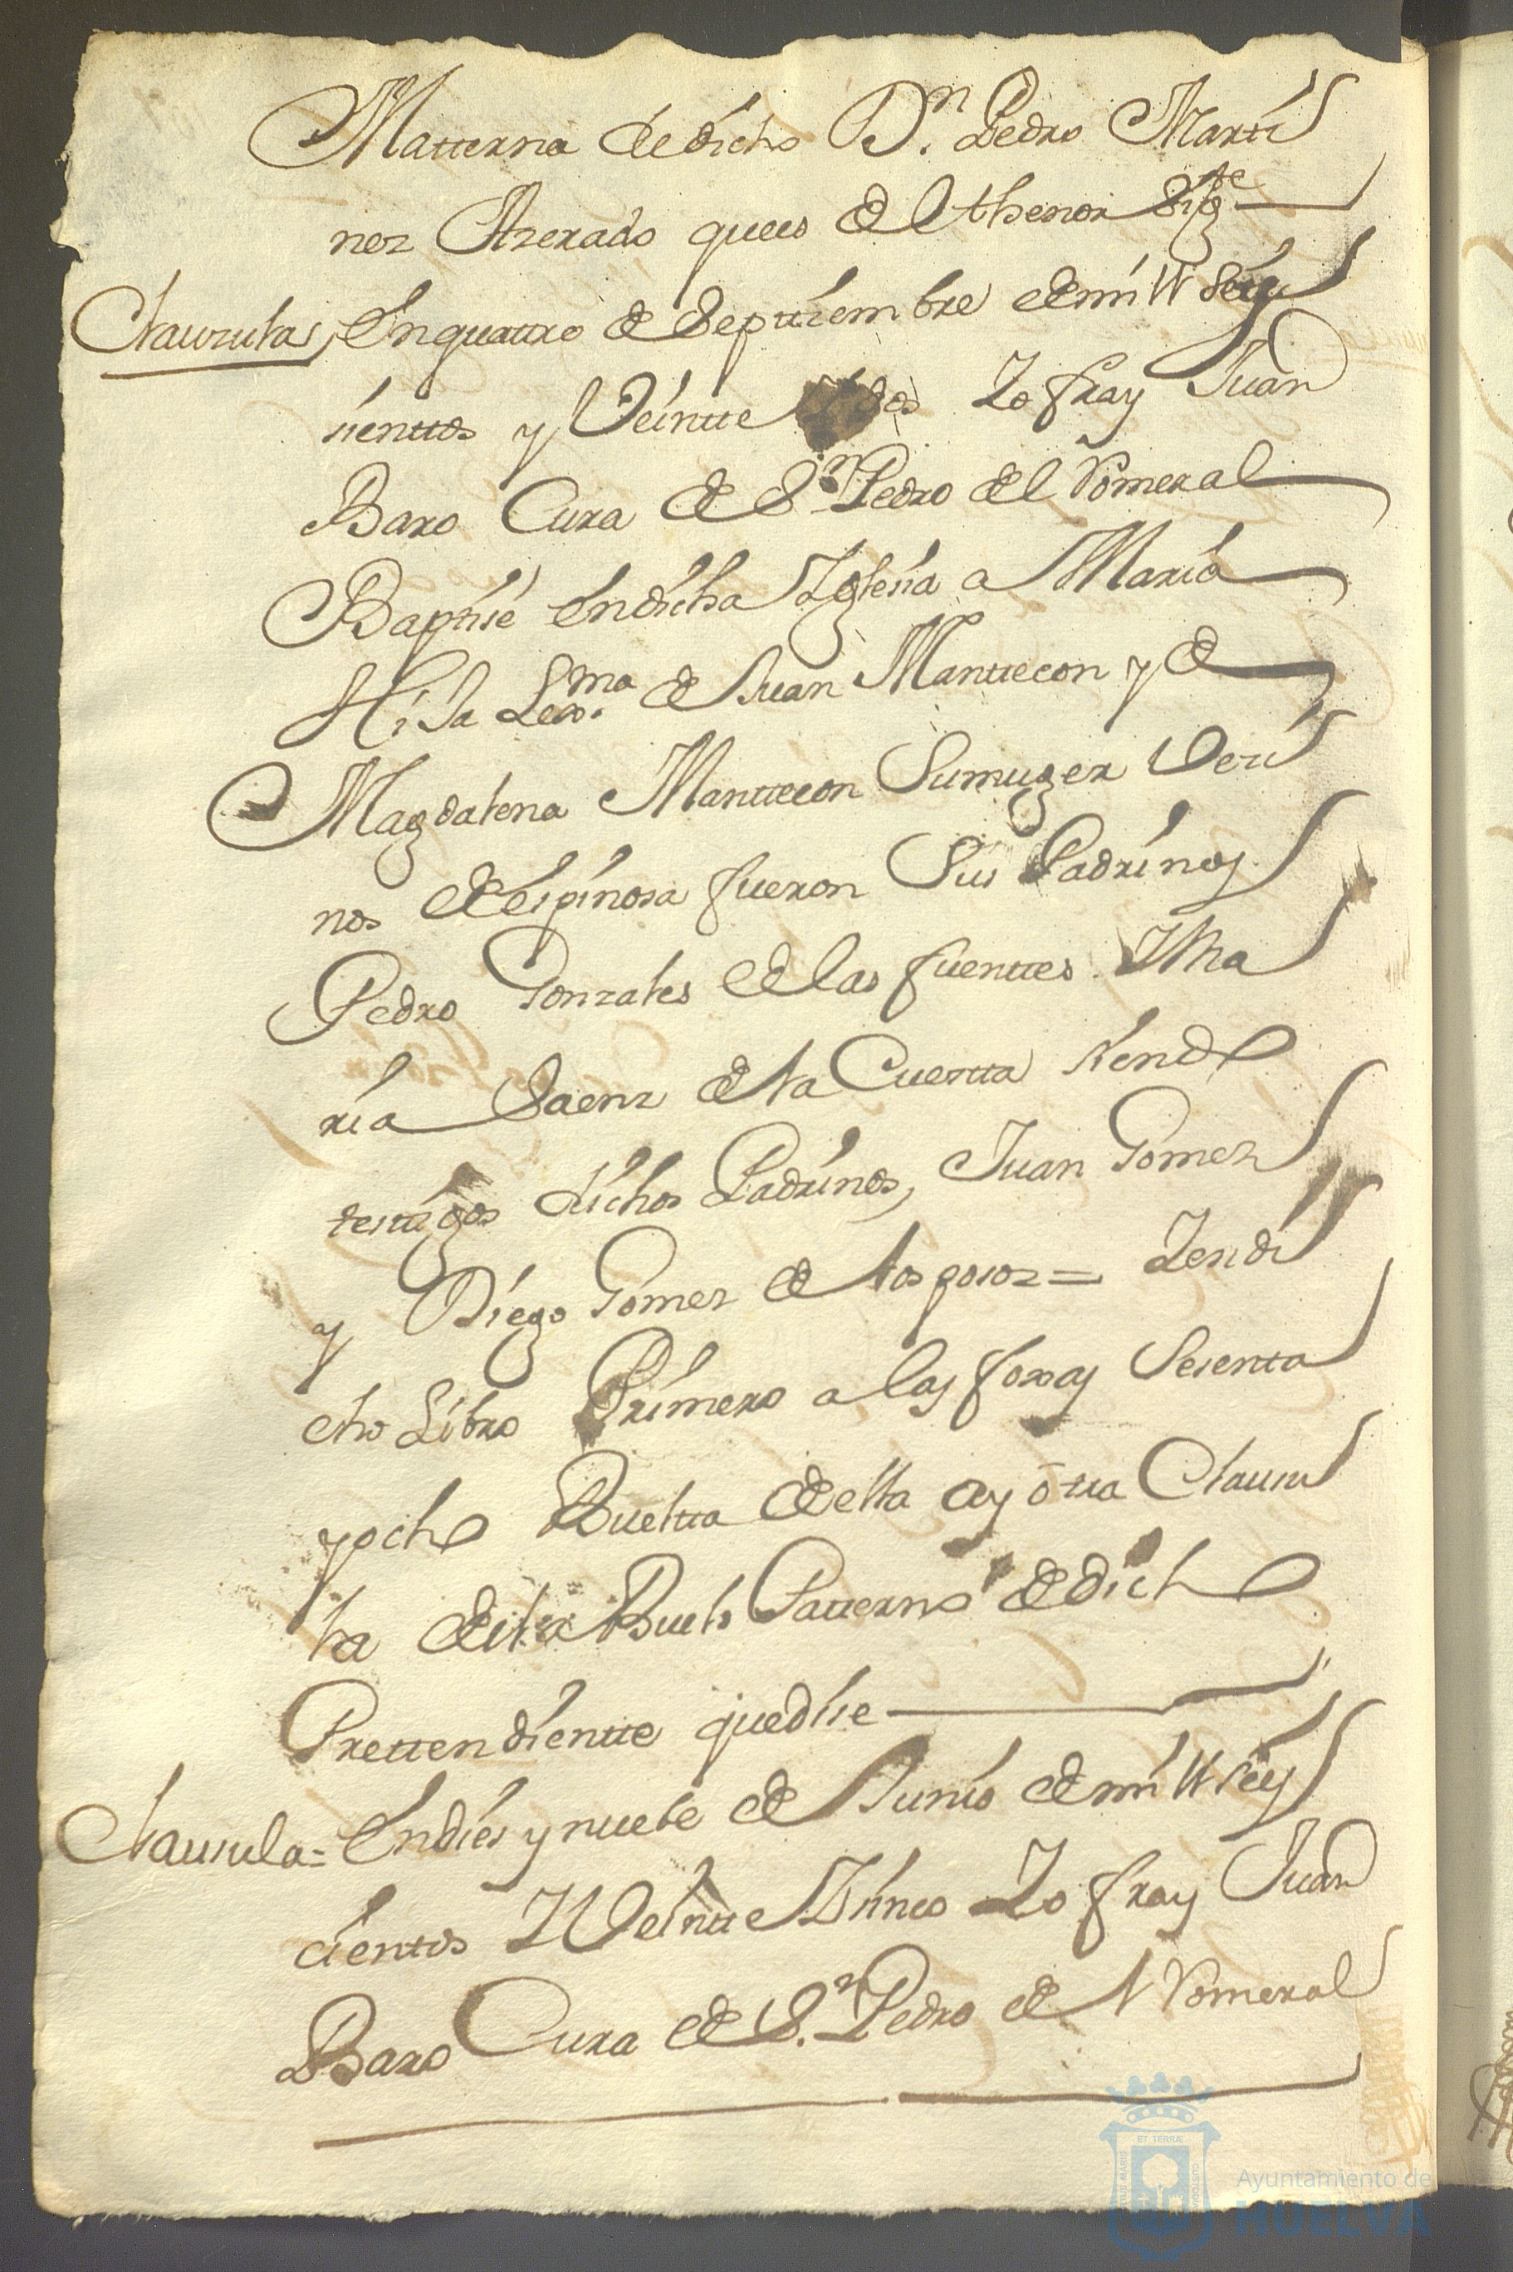 Matterna de dicho D.n Pedro Marti
nez Azerado que es del thenor Sig.te
Clausula, En quatro de Septtiembre de mill Seis
sienttos y Veintte dos Yo fray Juan
Baro Cura de S.n Pedro del Romeral
Baptise en dicha Yglesia a Maria
Hija Lex.ma de Juan Manttecon y de
Magdalena Manttecon Su muger Vezi
nos de espinosa fueron Sus Padrinos
Pedro Gonzales de las fuenttes Y Ma
ria Saenz de la Cuestta siendo
testigos dichos Padrinos, Juan Gomez
y Diego Gomez de los posos = Y en di
cho Libro Primero a las foxas Sesentta
y ocho Buelta de ella ay otra Clausu
la de la Buelo Patterno de dicho
Prettendientte que dise
Clausula = En dies y nuebe de Junio de mill seis
cienttos Y Veintte Y sinco Yo fray Juan
Baro Cura de S.n Pedro del Romeral
ET TERRAE
Ayuntamiento de
HUELVA